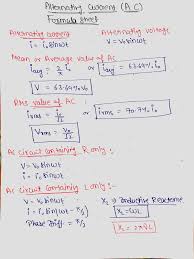 Alternating Current (A.C)
Formula sheet
Alternating current    Alternating voltage
i = i₀ sinωt    V = V₀ sinωt
Mean or Average value of AC
i avg = 2/π i₀ or i avg = 63.64% i₀
V = 63.64% V₀
RMS value of AC
i rms = i₀/√2 or i rms = 70.7% i₀
V rms = V₀/√2
AC circuit containing R only :-
V = V₀ sinωt
i = i₀ sinωt
AC circuit containing L only :-
V = V₀ sinωt    X_L → Inductive Reactance
i = i₀ sin(ωt - π/2)    X_L = ωL
Phase Diff. = π/2    X_L = 2πνL